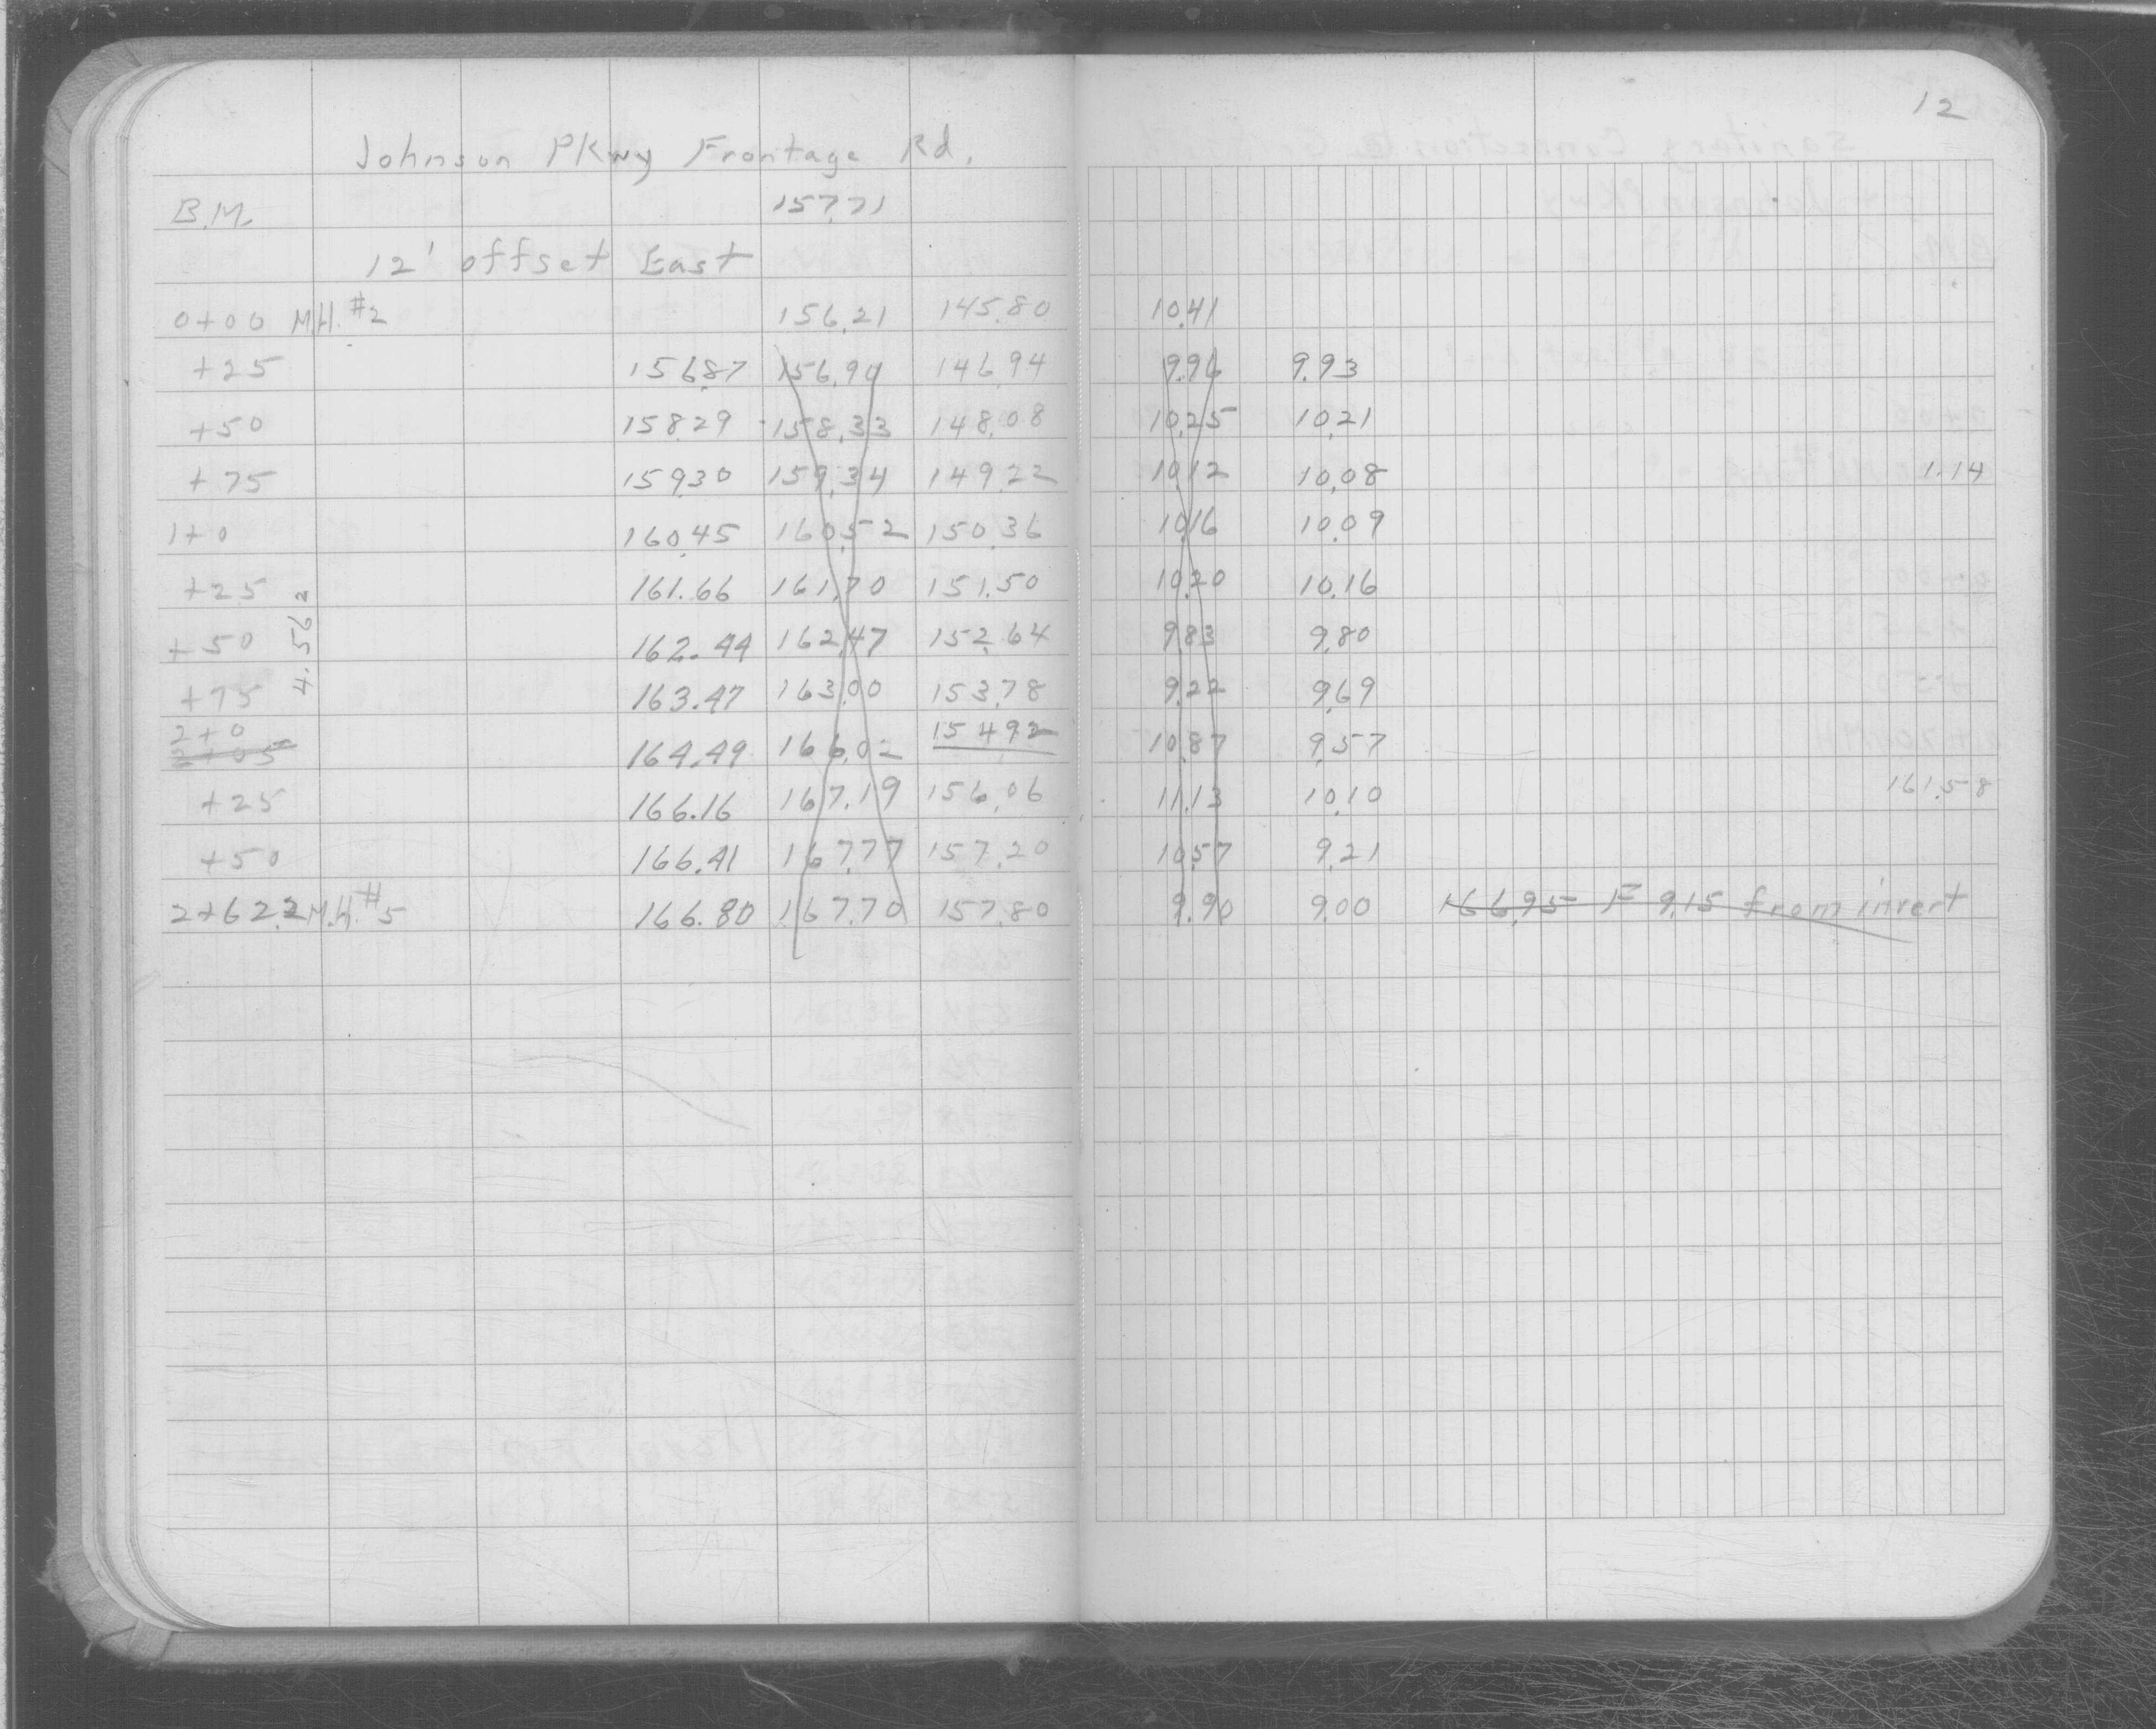 12
Johnson Pkwy Frontage Rd.
B.M. 157.71
12' offset East
0+00 M.H. #2 156.21 145.80 10.41
+25 156.87 156.90 146.94 9.96 9.93
+50 158.29 158.33 148.08 10.25 10.21
+75 159.30 159.34 149.22 10.12 10.08 1.14
1+0 160.45 160.52 150.36 10.16 10.09
+25 161.66 161.70 151.50 10.20 10.16
4.562
+50 162.44 162.47 152.64 9.83 9.80
+75 163.47 163.00 153.78 9.22 9.69
2+0
2+05 164.49 166.02 154.92 10.87 9.57
+25 166.16 167.19 156.06 11.13 10.10 161.58
+50 166.41 167.77 157.20 10.57 9.21
2+62.2 M.H. #5 166.80 167.70 157.80 9.90 9.00 166.95 F 9.15 from invert